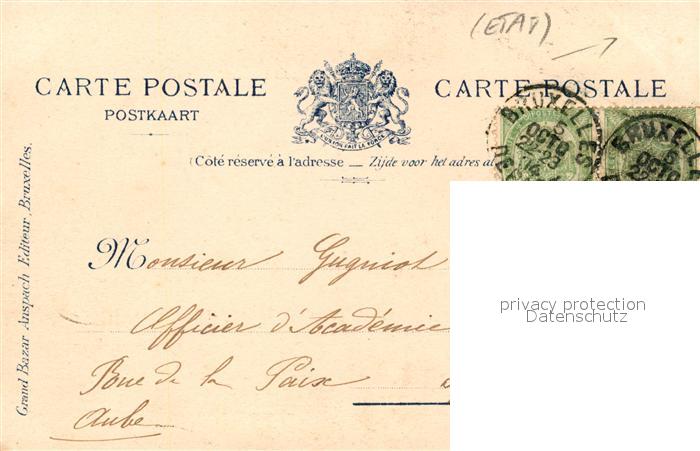 (ETAT)
CARTE POSTALE
CARTE POSTALE
POSTKAART
L'UNION FAIT LA FORCE
(Côté réservé à l'adresse — Zijde voor het adres al
BRUXELLES
5
OCTO
22-23
BRUXELL
5
OCTO
Grand Bazar Anspach Editeur, Bruxelles.
Monsieur Gugniot
Officier d'Académie
Rue de la Paix
Aube
privacy protection
Datenschutz